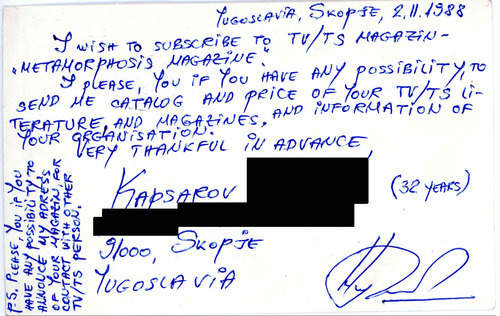 YUGOSLAVIA, SKOPJE, 2.11.1988
I WISH TO SUBSCRIBE TO TV/TS MAGAZIN-
"METAMORPHOSIS MAGAZINE".
I PLEASE, YOU IF YOU HAVE ANY POSSIBILITY, TO
SEND ME CATALOG AND PRICE OF YOUR TV/TS LI-
TERATURE, AND MAGAZINES, AND INFORMATION OF
YOUR ORGANISATION.
VERY THANKFUL IN ADVANCE,
KAPSAROV
(32 YEARS)
91000, SKOPJE
YUGOSLAVIA
P.S. PLEASE, YOU IF YOU
HAVE ANY POSSIBILITY TO
ANNOUCE MY ADRESS
OF YOUR MAGAZIN FOR
CONTACT WITH OTHER
TV/TS PERSON.